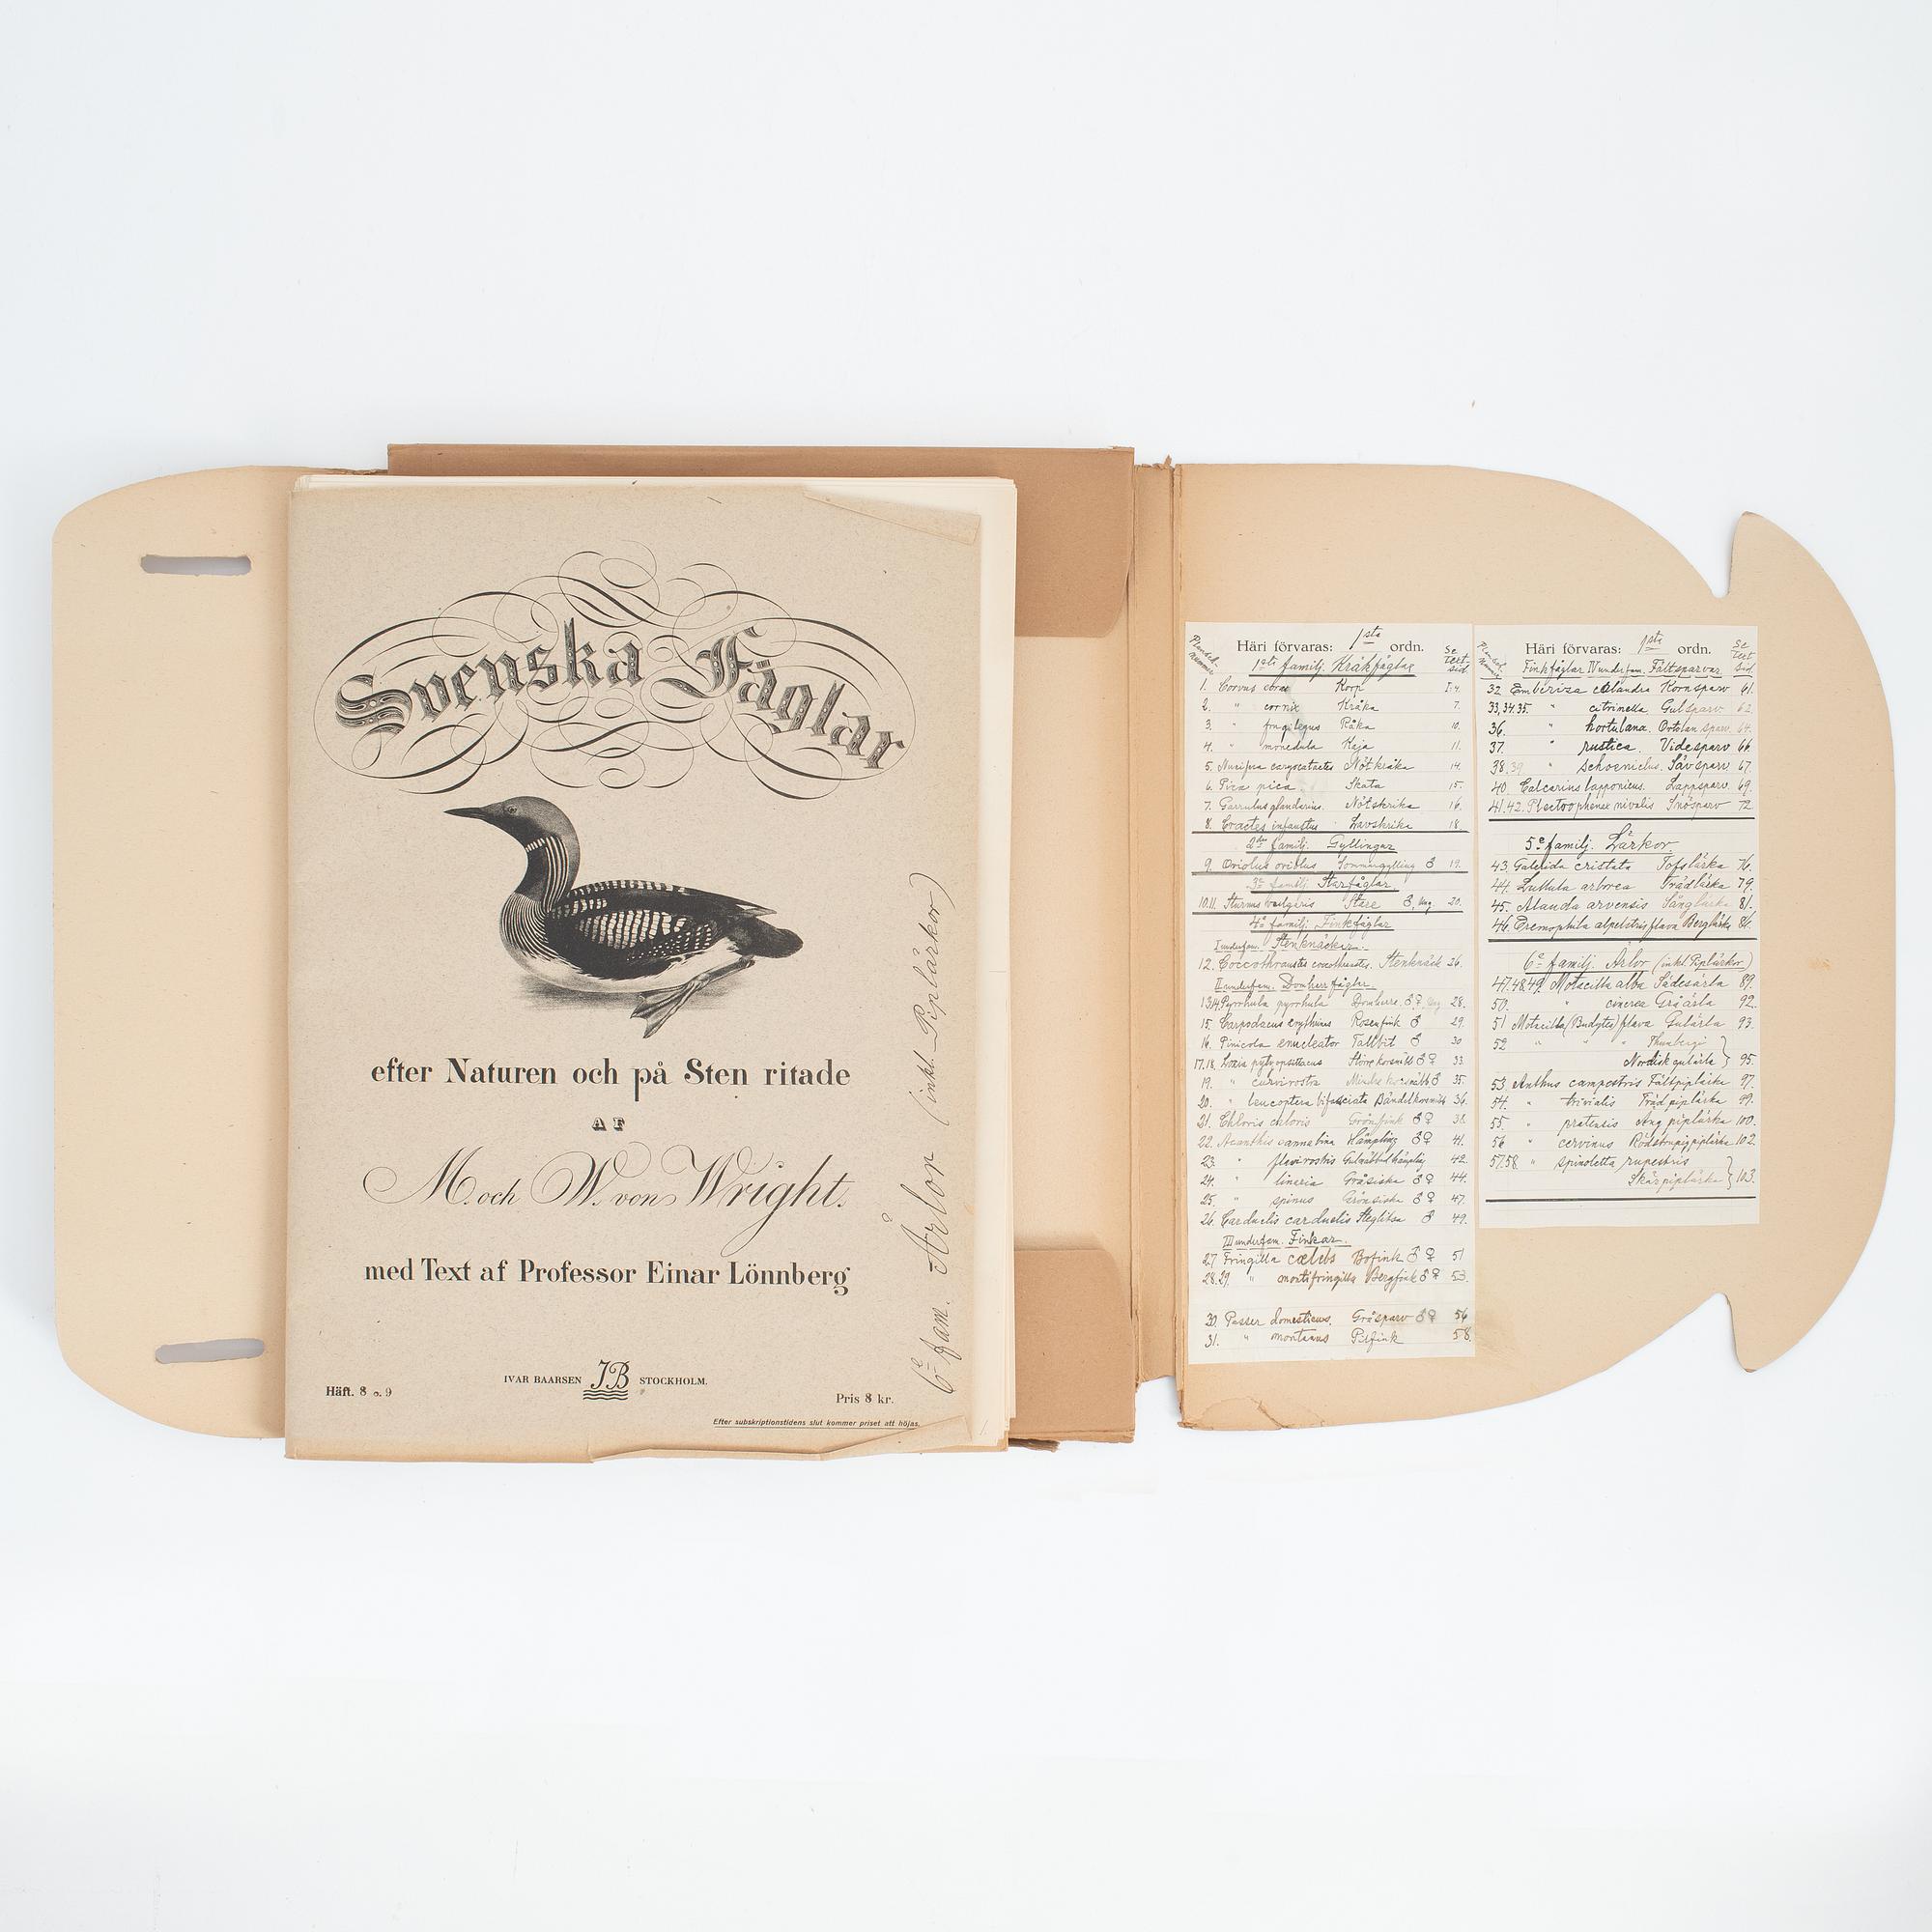 Svenska Fåglar
efter Naturen och på Sten ritade
AF
M. och W. von Wright.
med Text af Professor Einar Lönnberg
IVAR BAARSEN JB STOCKHOLM.
Häft. 8 o. 9
Pris 8 kr.
Efter subskriptionstidens slut kommer priset att höjas.
6e fam. Ärlor (inkl. Piplärkor)
Häri förvaras: 1sta ordn.
1sta familj. Kråkfåglar
1. Corvus corax Korp
2. " cornix Kråka 7.
3. " frugilegus Råka 10.
4. " monedula Kaja 11.
5. Nötkråka 14.
6. Pica pica Skata 15.
7. Garrulus glandarius. Nötskrika 16.
8. Cractes infaustus Lavskrika 18.
2dra familj. Gyllingar
9. Oriolus oriolus Sommargylling ♂ 19.
3e familj. Starfåglar
10.11. Sturnus vulgaris Stare ♂, ung 20.
4e familj. Finkfåglar
I underfam. Stenknäckar
12. Coccothraustes coccothraustes. Stenknäck 26.
II underfam. Domherrfåglar
13,14 Pyrrhula pyrrhula Domherre ♂♀ ung 28.
15. Carpodacus erythrinus Rosenfink ♂ 29.
16. Pinicola enucleator Tallbit ♂ 30
17.18. Loxia pytyopsittacus Större korsnäbb ♂♀ 33.
19. " curvirostra Mindre korsnäbb ♂ 35.
20. " leucoptera bifasciata Bändelkorsnäbb 36.
21. Chloris chloris Grönfink ♂♀ 38.
22. Acanthis cannabina Hämpling ♂♀ 41.
23. " flavirostris Gulnäbbad hämpling 42.
24. " linaria Gråsiska ♂♀ 44.
25. " spinus Grönsiska ♂♀ 47.
26. Carduelis carduelis Steglitsa ♂ 49.
III underfam. Finkar.
27 Fringilla cœlebs Bofink ♂♀ 51
28.29. " montifringilla Bergfink ♂♀ 53.
30. Passer domesticus. Gråsparv ♂♀ 56
31. " montanus Pilfink 58
Häri förvaras: 1sta ordn.
Finkfåglar IV underfam. Fältsparvar
32 Emberiza calandra Kornsparv 61.
33,34.35. " citrinella Gulsparv 62.
36. " hortulana. Ortolansparv 64.
37. " rustica. Videsparv 66.
38.39 " schoeniclus. Sävsparv 67.
40 Calcarius lapponicus. Lappsparv. 69.
41.42. Plectrophenax nivalis Snösparv 72.
5e familj. Lärkor.
43. Galerida cristata Tofslärka 76.
44. Lullula arborea Trädlärka 79.
45. Alauda arvensis Sånglärka 81.
46. Eremophila alpestris flava Berglärka 86.
6e familj. Ärlor (inkl. Piplärkor)
47.48.49. Motacilla alba Sädesärla 89.
50. " cinerea Gråärla 92.
51 Motacilla (Budytes) flava Gulärla 93.
52 " " " Thunbergi
Nordisk gulärla } 95.
53. Anthus campestris Fältpiplärka 97.
54. " trivialis Trädpiplärka 99.
55. " pratensis Ängpiplärka 100.
56 " cervinus Rödstrupig piplärka 102.
57.58. " spinoletta rupestris
Skärpiplärka } 103.